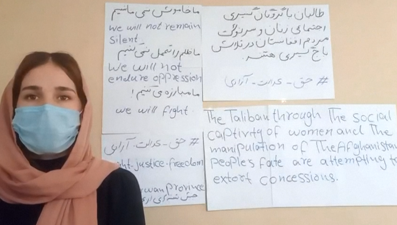 ما خاموش نمی مانیم
we will not remain
silent
ما ظلم را تحمل نمی کنیم
we will not
endure oppression
ما مبارزه می کنیم!
we will fight.
طالبان با گروگان گیری
اجتماعی زنان و سرنوشت
مردم افغانستان در تلاش
باج گیری هستند
# حق - عدالت - آزادی
# حق - عدالت - آزادی
justice-freedom
province
The Taliban through The social
captivity of women and The
manipulation of The Afghanistan
peoples fate are attempting to
extort concessions.